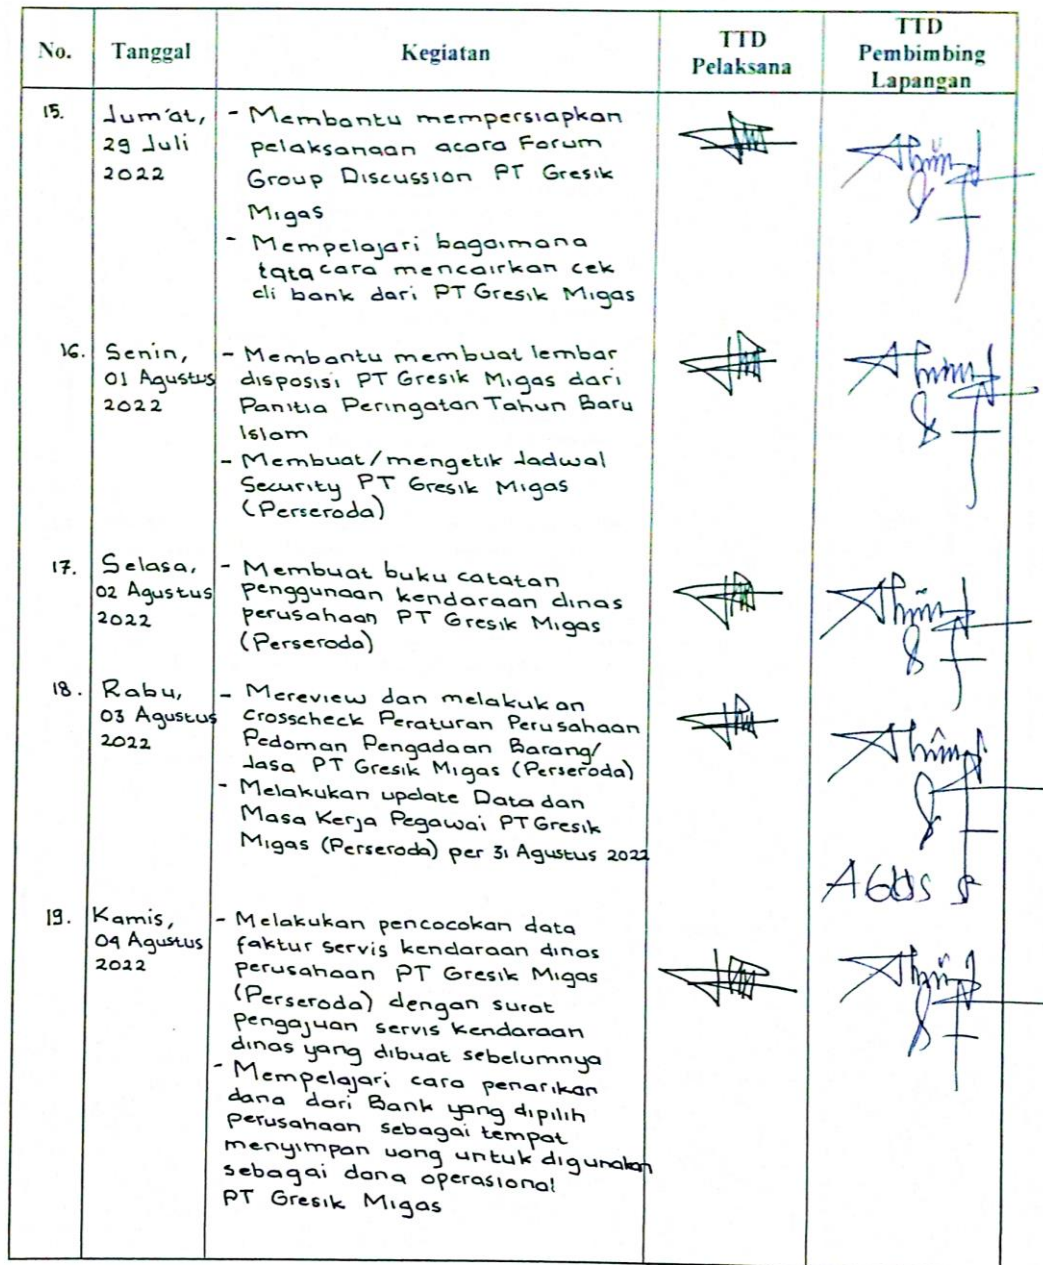 No. Tanggal Kegiatan TTD Pelaksana TTD Pembimbing Lapangan
15. Jum'at, 29 Juli 2022
- Membantu mempersiapkan
pelaksanaan acara Forum
Group Discussion PT Gresik
Migas
- Mempelajari bagaimana
tata cara mencairkan cek
di bank dari PT Gresik Migas
16. Senin, 01 Agustus 2022
- Membantu membuat lembar
disposisi PT Gresik Migas dari
Panitia Peringatan Tahun Baru
Islam
- Membuat/mengetik Jadwal
Security PT Gresik Migas
(Perseroda)
17. Selasa, 02 Agustus 2022
- Membuat buku catatan
penggunaan kendaraan dinas
perusahaan PT Gresik Migas
(Perseroda)
18. Rabu, 03 Agustus 2022
- Mereview dan melakukan
Crosscheck Peraturan Perusahaan
Pedoman Pengadaan Barang/
Jasa PT Gresik Migas (Perseroda)
- Melakukan update Data dan
Masa Kerja Pegawai PT Gresik
Migas (Perseroda) per 31 Agustus 2022
19. Kamis, 04 Agustus 2022
- Melakukan pencocokan data
faktur servis kendaraan dinas
perusahaan PT Gresik Migas
(Perseroda) dengan surat
pengajuan servis kendaraan
dinas yang dibuat sebelumnya
- Mempelajari cara penarikan
dana dari Bank yang dipilih
perusahaan sebagai tempat
menyimpan uang untuk digunakan
sebagai dana operasional
PT Gresik Migas